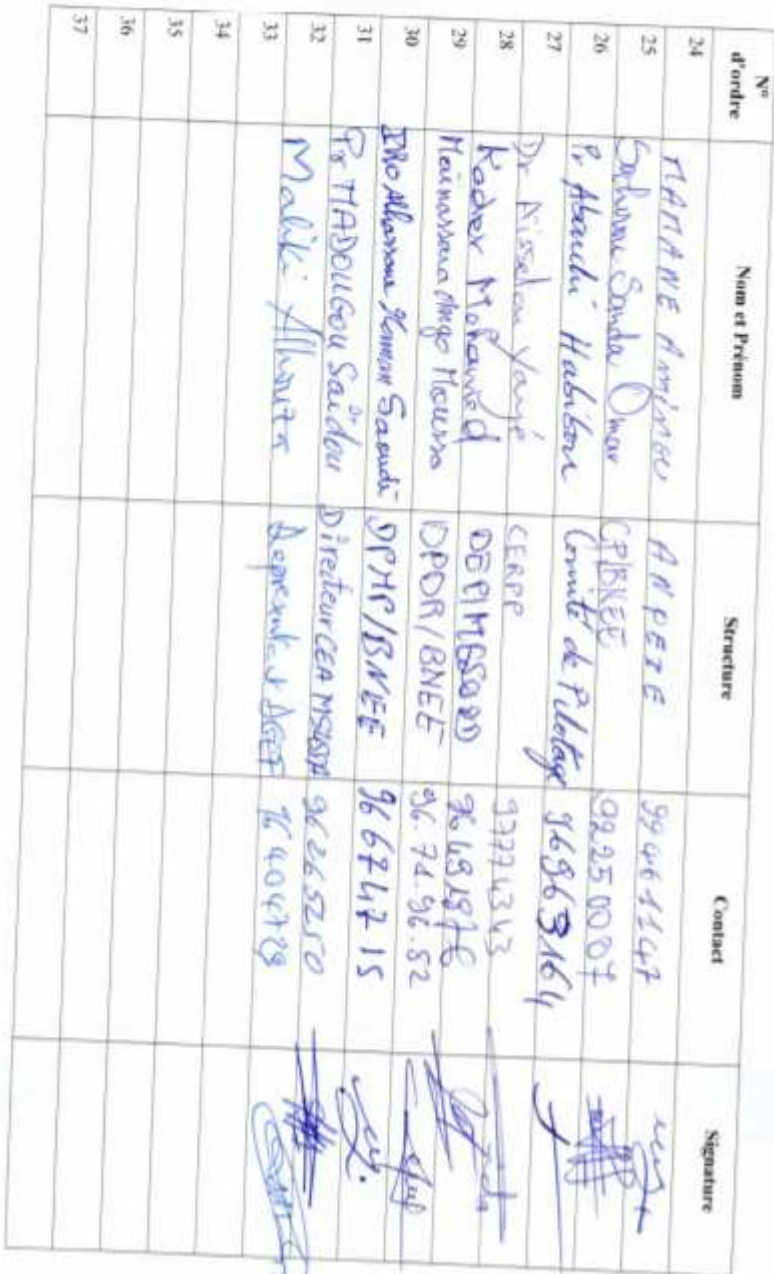 N° d'ordre Nom et Prénom Structure Contact Signature
24 MAMANE Aminou ANPEIE 99461147
25 Sanda Omar CP/BNEE 92250007
26 Pr Abarchi Habibou Comité de Pilotage 96963164
27 Dr Aissatou Yayé CERPP 97774343
28 Kader Mohamed 96491976
29 Maïnassara Ango Moussa DPDR/BNEE 96.74.96.52
30 Alhassane Saoudé DPMP/BNEE 96674715
31 Pr MADOUGOU Saïdou Directeur CEA 96265250
32 Maliki Représentant 96404729
33
34
35
36
37